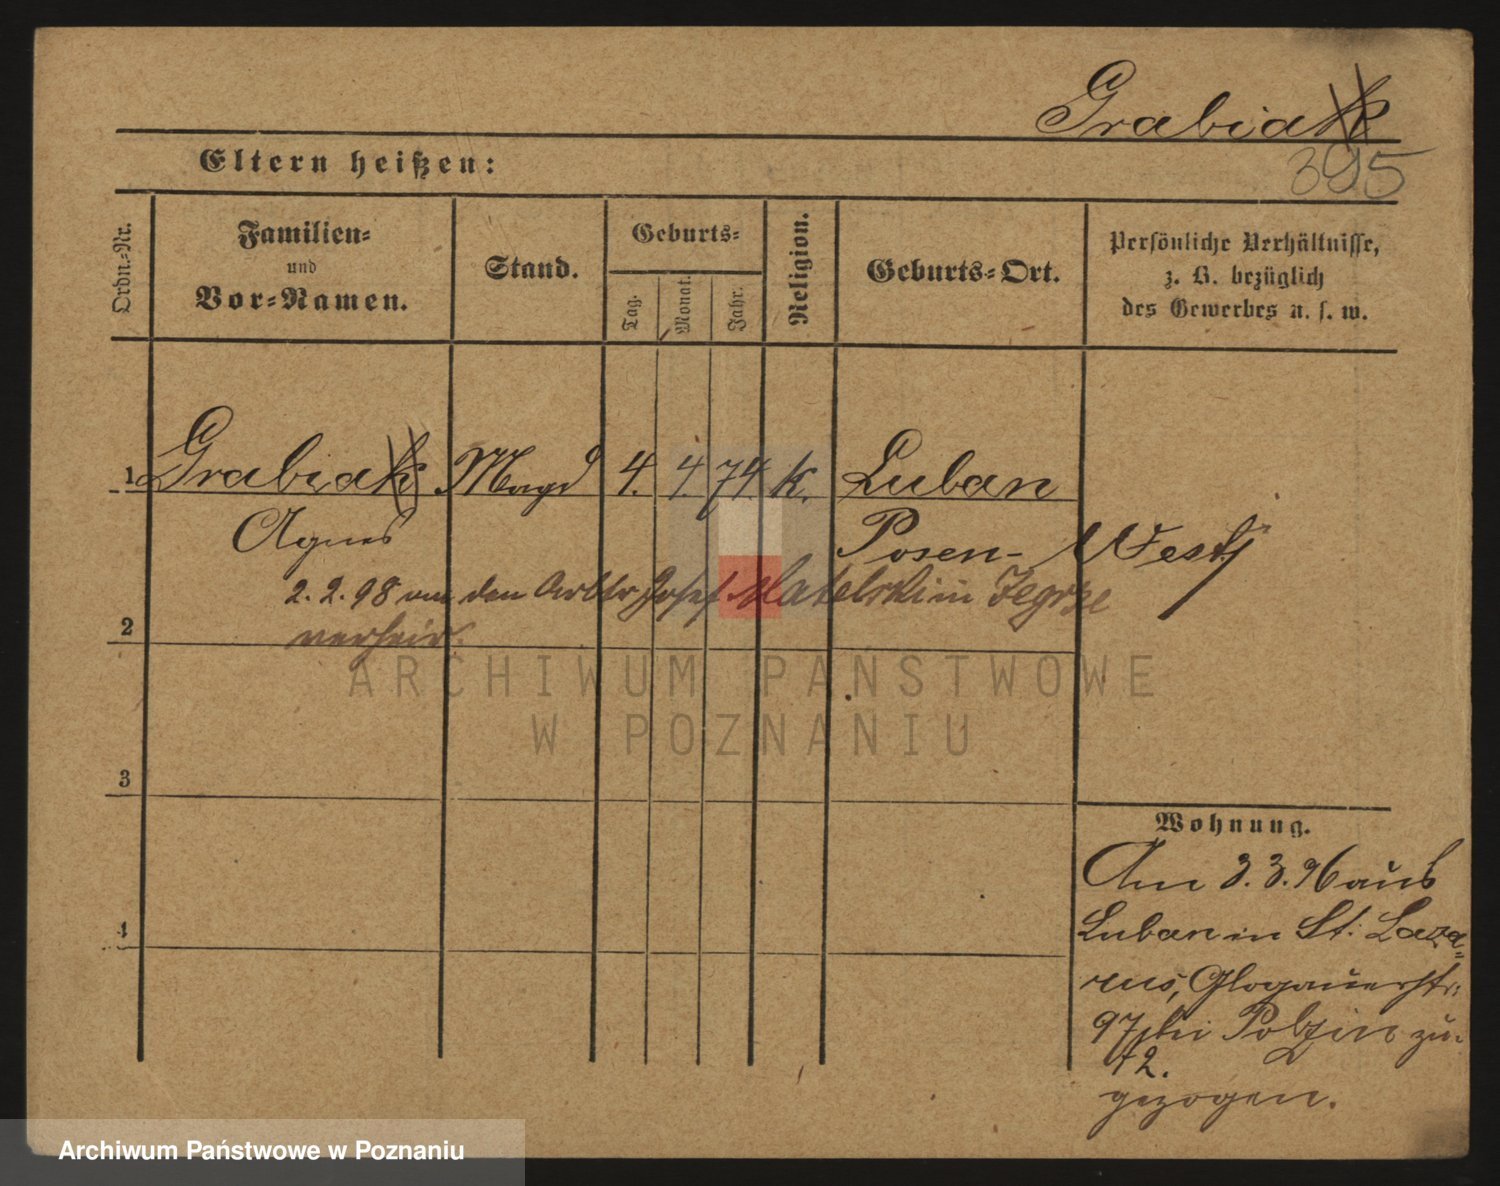 Grabiak
395
Eltern heißen:
Ordn.-Nr.
Familien-
und
Vor-Namen.
Stand.
Geburts-
Tag.
Monat.
Jahr.
Religion.
Geburts-Ort.
Persönliche Verhältnisse,
z. B. bezüglich
des Gewerbes u. s. w.
1 Grabiak Magd 4. 4. 74. K. Luban
Agnes Posen-West
2.2.98 an den Arbtr Josef Matelski in Zegrze
2 verheir.
ARCHIWUM PAŃSTWOWE
W POZNANIU
3
Wohnung.
Am 3.3.96 aus
4 Luban in St. Laza=
rus, Glogauerstr:
97 bei zu-
42.
gezogen.
Archiwum Państwowe w Poznaniu